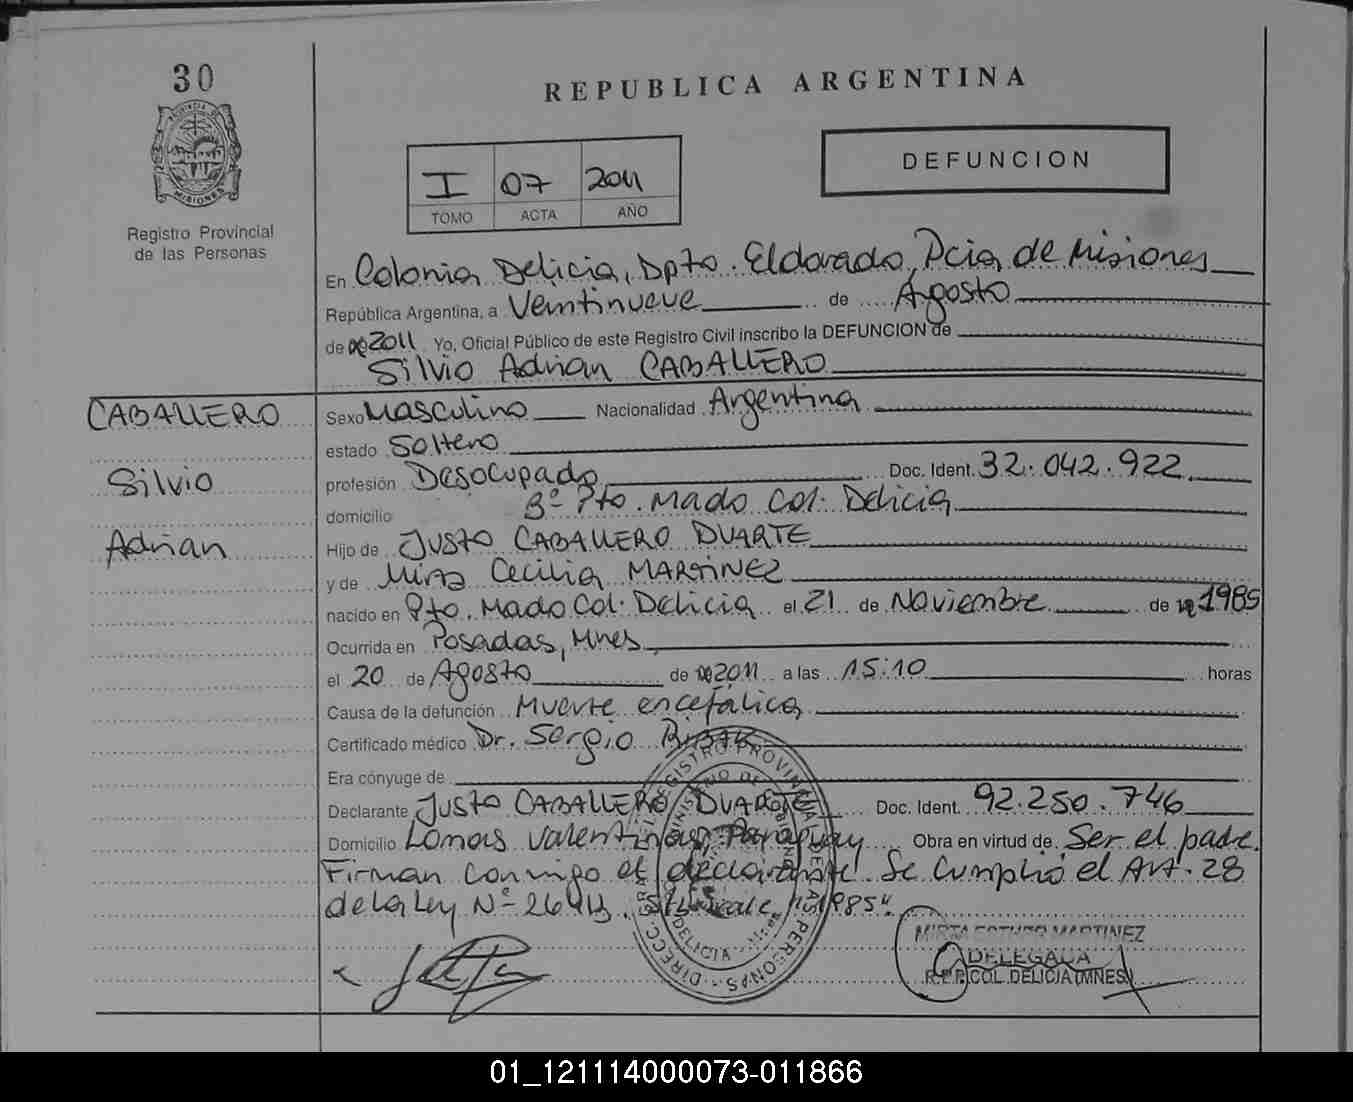 30
REPUBLICA ARGENTINA
PROVINCIA DE
MISIONES
Registro Provincial
de las Personas
I 07 2011
TOMO ACTA AÑO
DEFUNCION
En Colonia Delicia, Dpto. Eldorado, Pcia de Misiones
República Argentina, a Veintinueve de Agosto
de 2011 Yo, Oficial Público de este Registro Civil inscribo la DEFUNCION de
Silvio Adrian CABALLERO
CABALLERO
Silvio
Adrian
Sexo Masculino Nacionalidad Argentina
estado Soltero
profesión Desocupado Doc. Ident. 32.042.922
domicilio Bº Pto. Mado Col. Delicia
Hijo de Justo CABALLERO DUARTE
y de Mirta Cecilia MARTINEZ
nacido en Pto. Mado Col. Delicia el 21 de Noviembre de 1985
Ocurrida en Posadas, Mnes,
el 20 de Agosto de 2011 a las 15:10 horas
Causa de la defunción Muerte encefálica
Certificado médico Dr. Sergio
Era cónyuge de
Declarante Justo CABALLERO DUARTE Doc. Ident. 92.250.746
Domicilio Lomas Valentinas, Paraguay Obra en virtud de Ser el padre.
Firman conmigo el declarante. Se cumplió el Art. 28
de la Ley Nº 26413. "1985".
MIRTA ESTHER MARTINEZ
DELEGADA
R.P.P. COL. DELICIA (MNES)
01_121114000073-011866